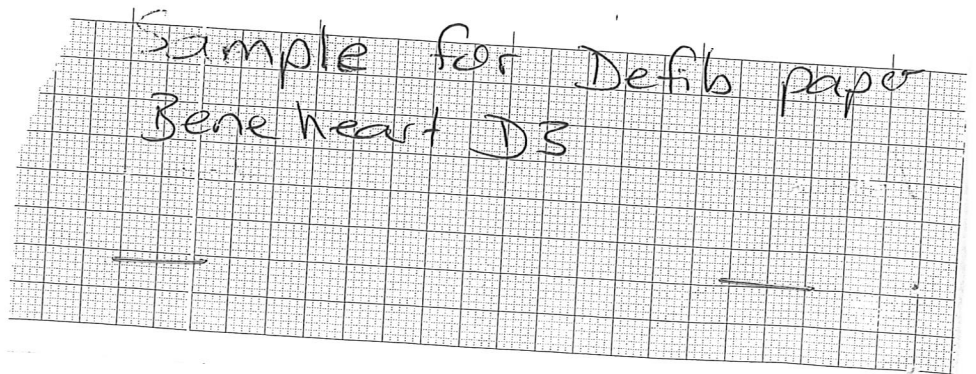 Sample for Defib paper
Beneheart D3